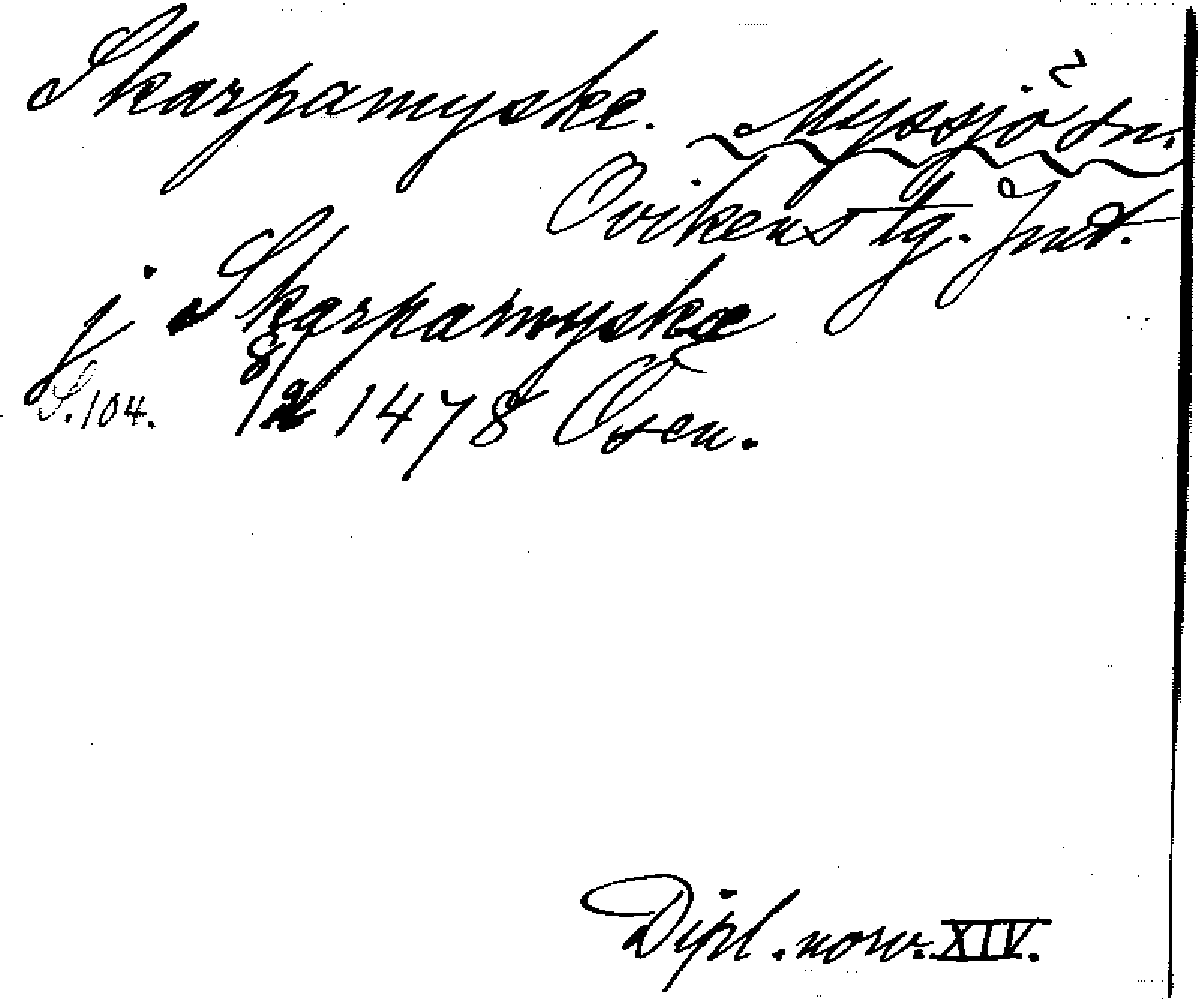 Skarpamyske. Myssjö sn.
Ovikens tg. Jmt.
j Skarpamyskæ
S. 104. 8/2 1478 Osen.
Dipl. norv. XIV.